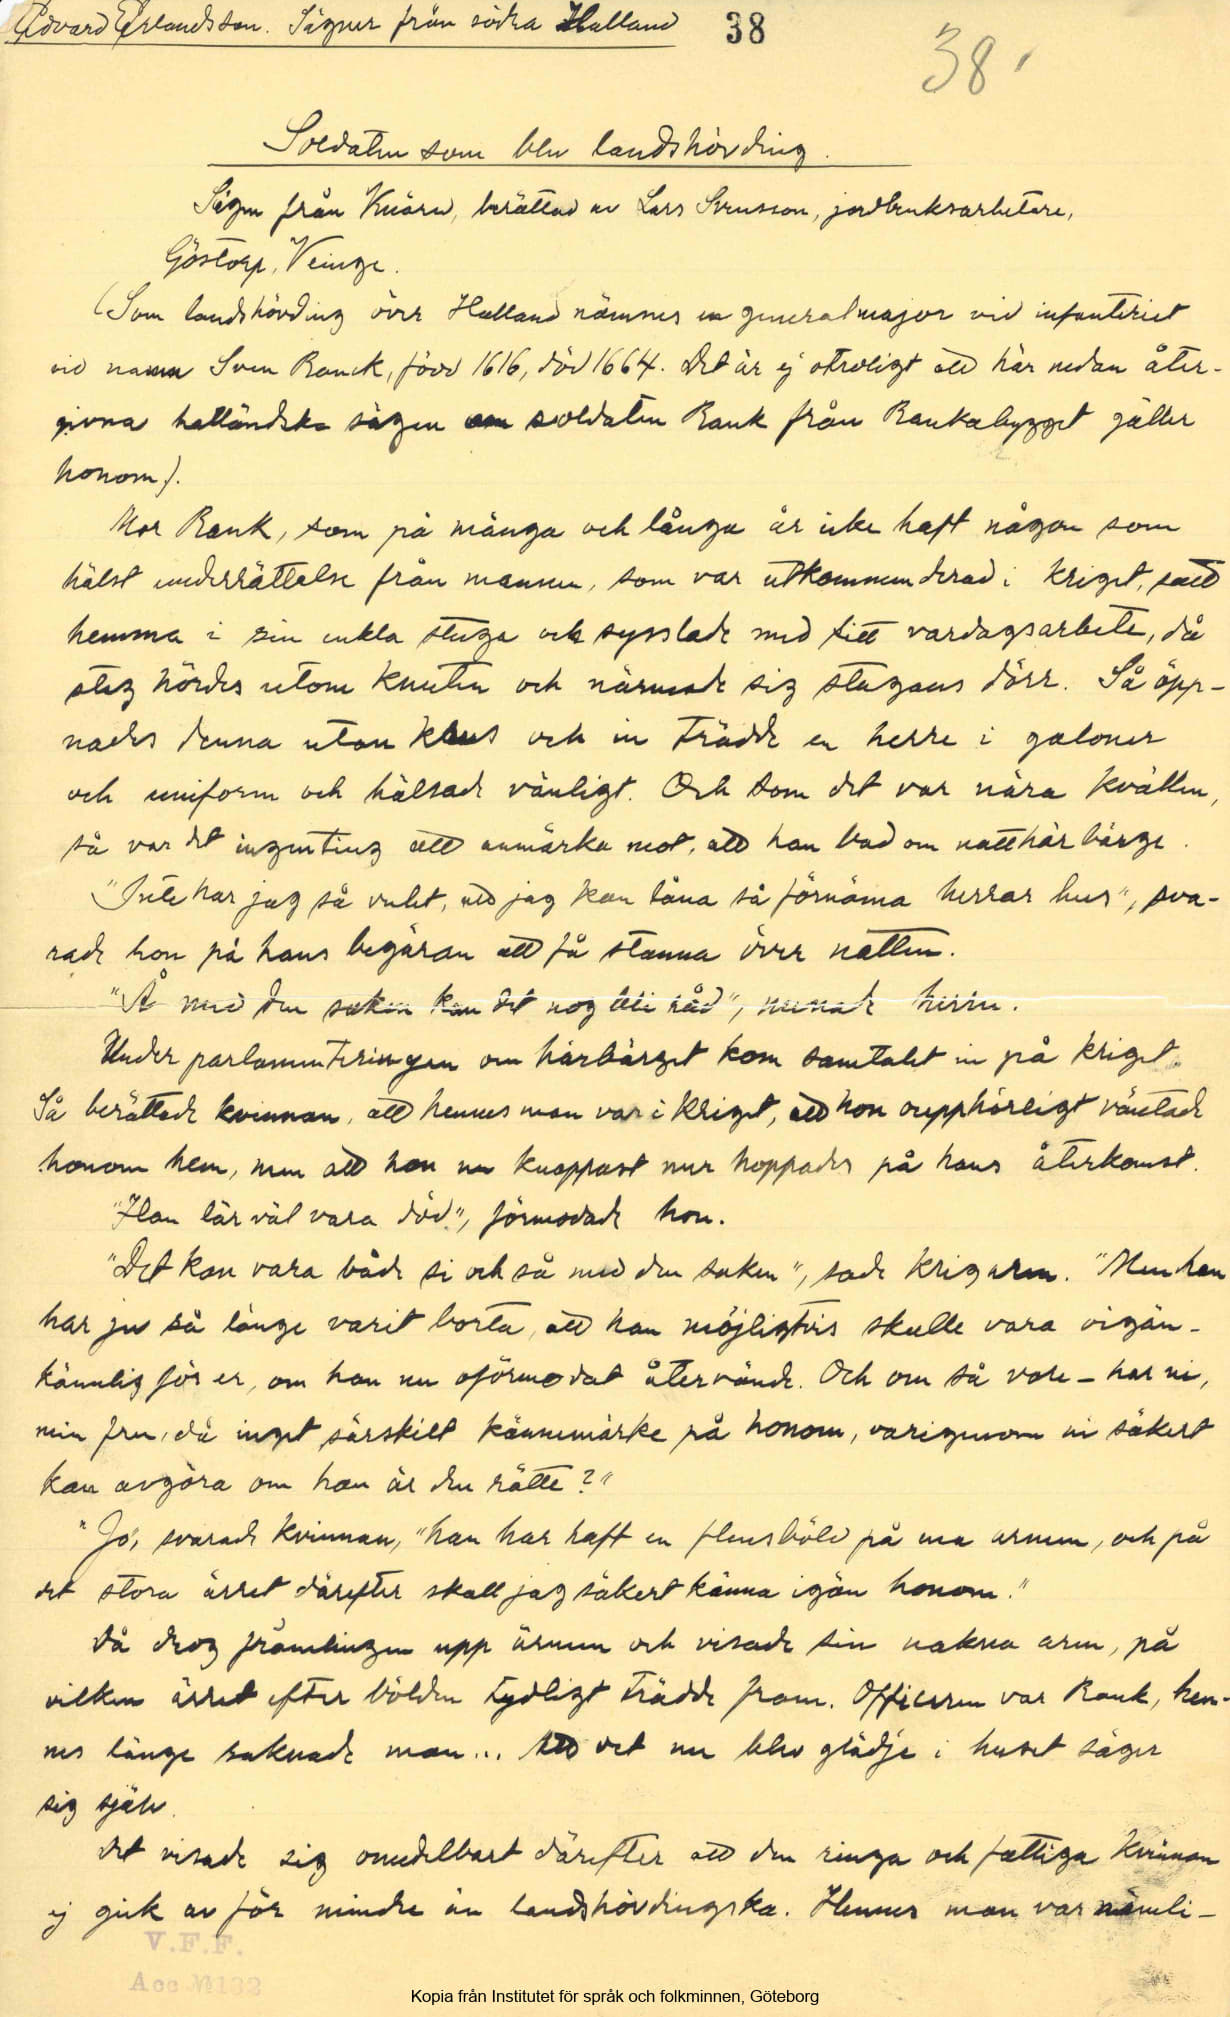 Edvard Erlandsson. Sägner från södra Halland 38
38
Soldaten som blev landshövding.
Sägen från Knäred, berättad av Lars Svensson, jordbruksarbetare,
Göstorp, Veinge.
(Som landshövding över Halland nämnes en generalmajor vid infanteriet
vid namn Sven Ranck, född 1616, död 1664. Det är ej otroligt att här nedan åter-
givna halländska sägen om soldaten Rank från Rankabygget gäller
honom).
Mor Rank, som på många och långa år icke haft någon som
hälst underrättelse från mannen, som var utkommenderad i kriget, satt
hemma i sin enkla stuga och sysslade med sitt vardagsarbete, då
steg hördes utom knuten och närmade sig stugans dörr. Så öpp-
nades denna utan krus och in trädde en herre i galoner
och uniform och hälsade vänligt. Och som det var nära kvällen,
så var det ingenting att anmärka mot, att han bad om natthärbärge.
"Inte har jag så vulet, att jag kan låna så förnäma herrar hus", sva-
rade hon på hans begäran att få stanna över natten.
"Å med den saken kan det nog bli råd", menade herrn.
Under parlamenteringen om härbärget kom samtalet in på kriget.
Så berättade kvinnan, att hennes man var i kriget, att hon oupphörligt väntade
honom hem, men att hon nu knappast mer hoppades på hans återkomst.
"Han lär väl vara död", förmodade hon.
"Det kan vara både si och så med den saken", sade krigaren. "Men han
har ju så länge varit borta, att han möjligtvis skulle vara oigän-
kännlig för er, om han nu oförmodat återvände. Och om så vore – har ni,
min fru, då inget särskilt kännemärke på honom, varigenom ni säkert
kan avgöra om han är den rätte?"
"Jo, svarade kvinnan, "han har haft en flensböld på ena armen, och på
det stora ärret därefter skall jag säkert känna igän honom."
Då drog främlingen upp ärmen och visade sin nakna arm, på
vilken ärret efter bölden tydligt trädde fram. Officeren var Rank, hen-
nes länge saknade man... Att det nu blev glädje i huset säger
sig själv.
Det visade sig omedelbart därefter att den ringa och fattiga kvinnan
ej gick av för mindre än landshövdingska. Hennes man var nämli-
V.F.F.
Acc № 132
Kopia från Institutet för språk och folkminnen, Göteborg